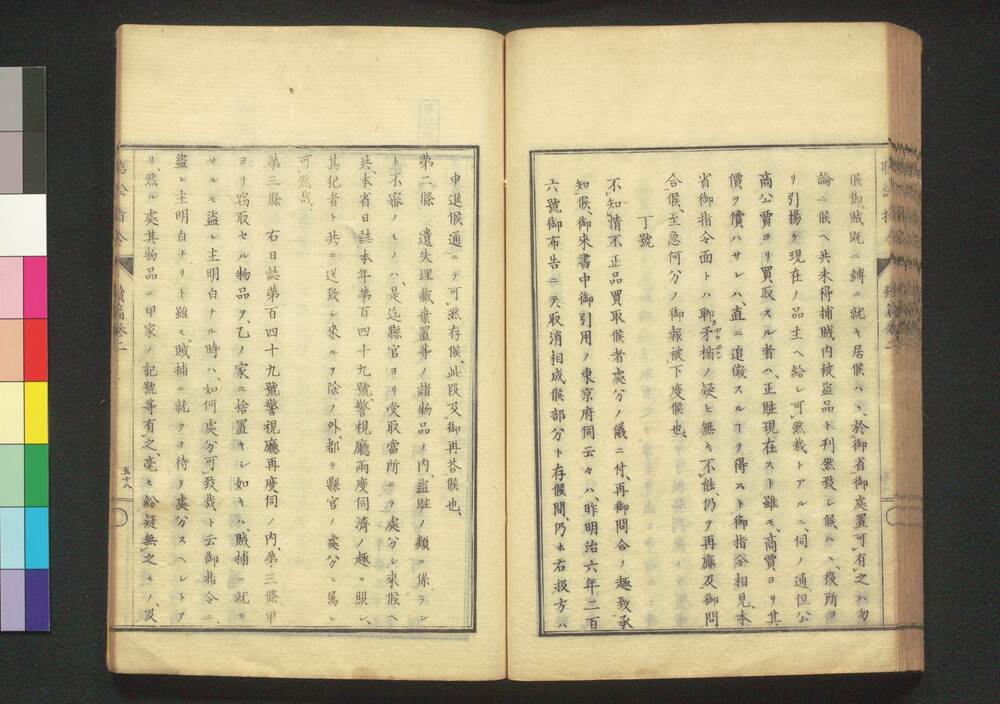 候節賊既ニ縛ニ就キ居候ハヽ、於御省御處置可有之ハ勿
論ニ候ヘ共未得捕賊内被盜品ト判然致シ候ハヽ、後所ヨ
リ引揚ケ現在ノ品主ヘ給シ可然哉トアルニ、伺ノ通但公
商公賈ヨリ買取スル者ハ、正贓現在スト雖モ、商賈ヨリ其
價ヲ償ハサレハ、直ニ追徴スルヿヲ得スト御指令相見、本
省御指令面トハ聊矛楯ノ疑ヒ無キ不能、仍ヲ再應及御問
合候、至急何分ノ御報被下度候也、
丁號
不知情不正品買取候者處分ノ儀ニ付、再御問合ノ趣致承
知候、御來書中御引用ノ東京府伺云々ハ、昨明治六年二百
六號御布告ニテ取消相成候部分ト存候間、仍ホ右扱方ハ
申進候通ニテ可然存候、此段及御再荅候也、
第二條　遺失埋藏棄置等ノ諸物品ノ内盜贓ノ類ニ係ラン
ト不審ノモノハ、是迄縣官ヨリ受取當所ニヲ處分シ來候ヘ
共、本省日誌本年第百四十九號、警視廳兩度伺濟ノ趣ニ照シ、
其犯者ト共ニ送致シ來ルヲ除ノ外都テ縣官ノ處分ニ属シ
可然哉、
第三條　右日誌第百四十九號警視廳再度伺ノ内、第三條甲
ヨリ竊取セル物品ヲ、乙ノ家ニ捨置キシ如キハ、賊捕ニ就カ
サルモ盜レ主明白ナル時ハ、如何處分可致哉ト云御指令ニ、
盜レ主明白トリト雖モ、賊捕ニ就クヲ待ヲ處分スヘシトア
リ、然ル處其物品ニ甲家ノ記號等有之、毫モ紛疑無之モノ、及
五十八